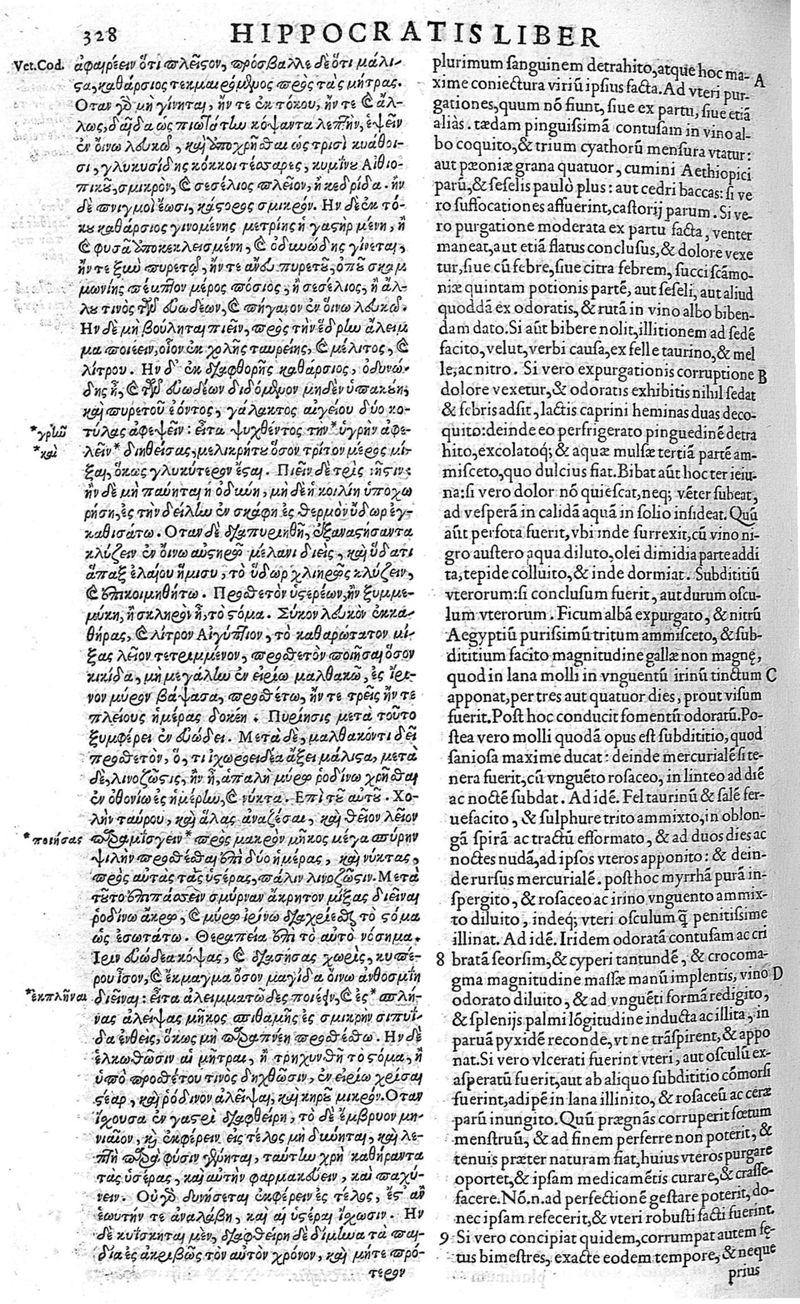 328 HIPPOCRATIS LIBER
Vet. Cod.
ἀφαιρέειν ὅτι πλεῖστον, πρόσβαλλε δὲ ὅτι μάλι-
στα, καθάρσιος τεκμαιρόμενος πρὸς τὰς μήτρας.
Ὅταν δὲ μὴ γίνηται, ἤν τε ἐκ τόκου, ἤν τε καὶ ἄλ-
λως, δαῖδα ὡς πιωτάτην κόψαντα λεπτὴν, ἑψεῖν
ἐν οἴνῳ λευκῷ, καὶ ὑποχρῆσθαι ὡς τρισὶ κυάθοι-
σι, γλυκυσίδης κόκκοι τέσσαρες, κυμίνου Αἰθιο-
πικοῦ, σμικρὸν, καὶ σεσέλιος πλεῖον, ἢ κεδρίδα. ἢν
δὲ πνιγμοὶ ἔωσι, κάστορος σμικρόν. Ἢν δὲ ἐκ τό-
κου καθάρσιος γινομένης μετρίης ἡ γαστὴρ μένῃ, ἢ
καὶ φῦσα ὑποκεκλεισμένη, καὶ ὀδυνώδης γίνεται,
ἤν τε ξὺν πυρετῷ, ἤν τε ἄνευ πυρετοῦ, ὀποῦ σκαμ
μωνίης πέμπτον μέρος πόσιος, ἢ σεσέλιος, ἢ ἄλ-
λου τινὸς τῶν εὐωδέων, καὶ πήγανον ἐν οἴνῳ λευκῷ.
Ἢν δὲ μὴ βούληται πιεῖν, πρὸς τὴν ἕδρην ἄλειμ
μα ποιέειν, οἷον ἐκ χολῆς ταυρείης, καὶ μέλιτος, καὶ
λίτρου. Ἢν δ' ἐκ διαφθορῆς καθάρσιος, ὀδυνώ-
δης ᾖ, καὶ τῶν εὐωδέων διδόμενον μηδὲν ὑπακούῃ,
καὶ πυρετοῦ ἐόντος, γάλακτος αἰγείου δύο κο-
τύλας ἀφεψεῖν: εἶτα ψυχθέντος τὴν * ὑγρὴν ἀφε-
λεῖν * διηθείσας, μελικρήτου ὅσον τρίτον μέρος μῖ-
ξαι, ὅκως γλυκύτερον ἔσται. Πιεῖν δὲ τρὶς νῆστιν:
ἢν δὲ μὴ παύηται ἡ ὀδύνη, μηδὲ ἡ κοιλίη ὑποχω
ρήσῃ, ἐς τὴν δείλην ἐν σκάφῃ ἐς θερμὸν ὕδωρ ἐγ-
καθισάτω. Ὅταν δὲ διαπυριηθῇ, ἐξαναστήσαντα
κλύζειν ἐν οἴνῳ αὐστηρῷ μέλανι διεὶς, καὶ ὕδατι
ἅπαξ ἐλαίου ἥμισυ, τὸ ὕδωρ χλιηρῶς κλύζειν,
καὶ ἐπικοιμηθήτω. Πρόσθετον ὑστερέων, ἢν ξυμμε-
μύκῃ, ἢ σκληρὸν ᾖ, τὸ στόμα. Σῦκον λευκὸν ἐκκα-
θήρας, καὶ λίτρον Αἰγύπτιον, τὸ καθαρώτατον μί-
ξας λεῖον τετριμμένον, πρόσθετον ποιῆσαι ὅσον
κικίδα, μὴ μεγάλην ἐν εἰρίῳ μαλθακῷ, ἐς ἴρι-
νον μύρον βάψασα, προσθέτω, ἤν τε τρεῖς ἤν τε
πλείους ἡμέρας δοκέῃ. Πυρίησις μετὰ τοῦτο
ξυμφέρει ἐν εὐώδει. Μετὰ δὲ, μαλθακόντι δεῖ
πρόσθετον, ὅ, τι ἰχωροειδέα ἄξει μάλιστα, μετὰ
δὲ, λινόζωστις, ἢν ᾖ, ἁπαλὴ μύρῳ ῥοδίνῳ χρῆσθαι
ἐν ὀθονίῳ ἐς ἡμέρην, καὶ νύκτα. Ἐπὶ τοῦ αὐτοῦ. Χο-
λὴν ταύρου, καὶ ἅλας ἀναζέσαι, καὶ θεῖον λεῖον
παραμίσγειν * πρὸς μακρὸν μῆκος μέγα σπύρην
ψιλὴν προσθεῖναι ἐπὶ δύο ἡμέρας, καὶ νύκτας,
πρὸς αὐτὰς τὰς ὑστέρας, πάλιν λινόζωστιν. Μετὰ
τοῦτο ἐπιπάσσειν σμύρναν ἄκρητον μίξας διεῖναι
ῥοδίνῳ ἄκρῳ, καὶ μύρῳ ἰρίνῳ διαχρίεσθαι τὸ στόμα
ὡς ἐσωτάτω. Θεραπεία ἐπὶ τὸ αὐτὸ νόσημα.
Ἶριν εὐώδεα κόψας, καὶ διασήσας χωρὶς, κυπέ-
ρου ἶσον, καὶ ἔκμαγμα ὅσον μαγίδα οἴνῳ ἀνθοσμίῃ
διεῖναι: εἶτα ἀλειμματῶδες ποιέειν, καὶ ἐς * σπλῆ-
νας ἀλείψας μῆκος σπιθαμῆς ἐς σμικρὴν σιπυΐ-
δα ἐνθεὶς, ὅκως μὴ διαπνέῃ προσθέσθω. Ἢν δὲ
ἑλκωθῶσιν αἱ μῆτραι, ἢ τρηχυνθῇ τὸ στόμα, ἢ
ὑπὸ προσθέτου τινὸς δηχθῶσιν, ἐν εἰρίῳ χρίσαι
στέαρ, καὶ ῥόδινον ἀλεῖψαι, καὶ κηροῦ μικρόν. Ὅταν
ἴσχουσα ἐν γαστρὶ διαφθείρῃ, τὸ δὲ ἔμβρυον μη-
νιαῖον, καὶ ἐκφέρειν εἰς τέλος μὴ δύνηται, καὶ λε-
πτὴ παρὰ φύσιν γίνηται, ταύτην χρὴ καθήραντα
τὰς ὑστέρας, καὶ αὐτὴν φαρμακεύειν, καὶ παχύ-
νειν. Οὐ γὰρ δυνήσεται ἐκφέρειν ἐς τέλος, ἔστ' ἂν
ἑωυτήν τε ἀναλάβῃ, καὶ αἱ ὑστέραι ἴσχωσιν. Ἢν
δὲ κυΐσκηται μὲν, διαφθείρῃ δὲ δίμηνα τὰ παι-
δία ἐς ἀκριβῶς τὸν αὐτὸν χρόνον, καὶ μήτε πρό-
τερον
* γρηῦν
* καὶ
* ποιήσας
* ἐκπλῆναι
plurimum ſanguinem detrahito, atque hoc ma- A
xime coniectura viriũ ipſius facta. Ad vteri pur-
gationes, quum nõ fiunt, ſiue ex partu, ſiue etiã
alias. tædam pinguiſsimã contuſam in vino al-
bo coquito, & trium cyathorũ menſura vtatur:
aut pæoniæ grana quatuor, cumini Aethiopici
parũ, & ſeſelis paulò plus: aut cedri baccas: ſi ve
ro ſuffocationes affuerint, caſtorij parum. Si ve-
ro purgatione moderata ex partu facta, venter
maneat, aut etiã flatus concluſus, & dolore vexe
tur, ſiue cũ febre, ſiue citra febrem, ſucci ſcãmo-
niæ quintam potionis partẽ, aut ſeſeli, aut aliud
quoddã ex odoratis, & rutã in vino albo biben-
dam dato. Si aũt bibere nolit, illitionem ad ſedẽ
facito, velut, verbi cauſa, ex felle taurino, & mel
le, ac nitro. Si vero expurgationis corruptione B
dolore vexetur, & odoratis exhibitis nihil ſedat
& febris adſit, lactis caprini heminas duas deco-
quito: deinde eo perfrigerato pinguedinẽ detra
hito, excolatoq́; & aquæ mulſæ tertiã partẽ am-
miſceto, quo dulcius fiat. Bibat aũt hoc ter ieiu-
na: ſi vero dolor nõ quieſcat, neq; vẽter ſubeat,
ad veſperã in calidã aquã in ſolio inſideat. Quũ
aũt perfota fuerit, vbi inde ſurrexit, cũ vino ni-
gro auſtero aqua diluto, olei dimidia parte addi
ta, tepide colluito, & inde dormiat. Subdititiũ
vterorum: ſi concluſum fuerit, aut durum oſcu-
lum vterorum. Ficum albã expurgato, & nitrũ
Aegyptiũ puriſsimũ tritum ammiſceto, & ſub-
dititium facito magnitudine gallæ non magnę,
quod in lana molli in vnguentũ irinũ tinctum C
apponat, per tres aut quatuor dies, prout viſum
fuerit. Poſt hoc conducit fomentũ odoratũ. Po-
ſtea vero molli quodã opus eſt ſubdititio, quod
ſanioſa maxime ducat: deinde mercurialẽ ſi te-
nera fuerit, cũ vnguẽto roſaceo, in linteo ad diẽ
ac noctẽ ſubdat. Ad idẽ. Fel taurinũ & ſalẽ fer-
uefacito, & ſulphure trito ammixto, in oblon-
gã ſpirã ac tractũ efformato, & ad duos dies ac
noctes nudã, ad ipſos vteros apponito: & dein-
de rurſus mercurialẽ. poſt hoc myrrhã purã in-
ſpergito, & roſaceo ac irino vnguento ammix-
to diluito, indeq; vteri oſculum q̃ penitiſsime
illinat. Ad idẽ. Iridem odoratã contuſam ac cri
8 bratã ſeorſim, & cyperi tantundẽ, & crocoma-
gma magnitudine maſſæ manũ implentis, vino D
odorato diluito, & ad vnguẽti formã redigito,
& ſplenijs palmi lõgitudine inducta ac illita, in
paruã pyxidẽ reconde, vt ne trãſpirent, & appo
nat. Si vero vlcerati fuerint vteri, aut oſculũ ex-
aſperatũ fuerit, aut ab aliquo ſubdititio cõmorſi
fuerint, adipẽ in lana illinito, & roſaceũ ac ceræ
parũ inungito. Quũ prægnãs corruperit fœtum
menſtruũ, & ad finem perferre non poterit, &
tenuis præter naturam fiat, huius vteros purgare
oportet, & ipſam medicamẽtis curare, & craſſe-
facere. Nõ.n. ad perfectionẽ geſtare poterit, do-
nec ipſam refecerit, & vteri robuſti facti fuerint.
9 Si vero concipiat quidem, corrumpat autem fę-
tus bimeſtres, exacte eodem tempore, & neque
prius